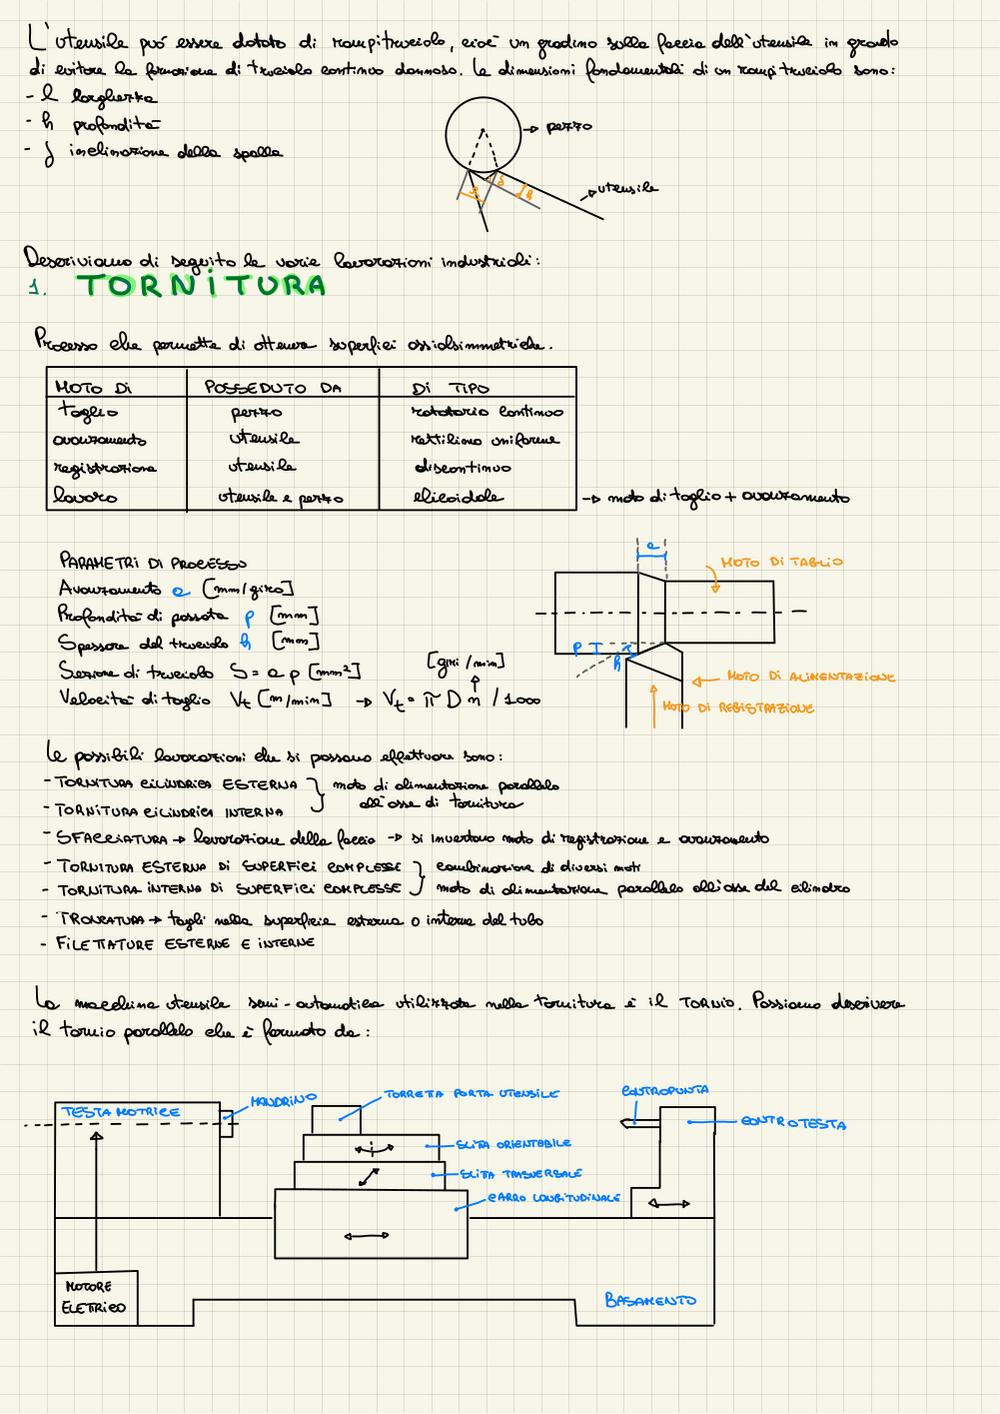 L'utensile può essere dotato di rompitruciolo, cioè un gradino sulla faccia dell'utensile in grado
di evitare la formazione di truciolo continuo dannoso. Le dimensioni fondamentali di un rompitruciolo sono:
- l larghezza
- h profondità
- δ inclinazione della spalla
pezzo
utensile
Descriviamo di seguito le varie lavorazioni industriali:
1. TORNITURA
Processo che permette di ottenere superfici assialsimmetriche.
MOTO DI POSSEDUTO DA DI TIPO
taglio pezzo rotatorio continuo
avanzamento utensile rettilineo uniforme
registrazione utensile discontinuo
lavoro utensile e pezzo elicoidale → moto di taglio + avanzamento
PARAMETRI DI PROCESSO
Avanzamento a [mm/giro]
Profondità di passata p [mm]
Spessore del truciolo h [mm]
Sezione di truciolo S = a p [mm²]
[giri/min]
Velocità di taglio Vt [m/min] → Vt = π D n / 1000
a
MOTO DI TAGLIO
p
h
MOTO DI ALIMENTAZIONE
MOTO DI REGISTRAZIONE
Le possibili lavorazioni che si possono effettuare sono:
- TORNITURA CILINDRICA ESTERNA
- TORNITURA CILINDRICA INTERNA
moto di alimentazione parallelo
all'asse di tornitura
- SFACCIATURA → lavorazione della faccia → si invertono moto di registrazione e avanzamento
- TORNITURA ESTERNA DI SUPERFICI COMPLESSE
- TORNITURA INTERNA DI SUPERFICI COMPLESSE
combinazione di diversi moti
moto di alimentazione parallelo all'asse del cilindro
- TRONCATURA → tagli nella superficie esterna o interna del tubo
- FILETTATURE ESTERNE E INTERNE
La macchina utensile semi-automatica utilizzata nella tornitura è il TORNIO. Possiamo descrivere
il tornio parallelo che è formato da:
TESTA MOTRICE
MANDRINO
TORRETA PORTA UTENSILE
CONTROPUNTA
CONTROTESTA
SLITA ORIENTABILE
SLITA TRASVERSALE
CARRO LONGITUDINALE
MOTORE
ELETRICO
BASAMENTO